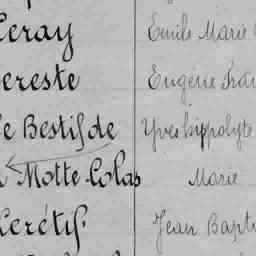 Leray Emile Marie
Lereste Eugène Fran
Le Bestif de Yves hippolyte
Motte-Colas Marie
Lerétif Jean Bapti